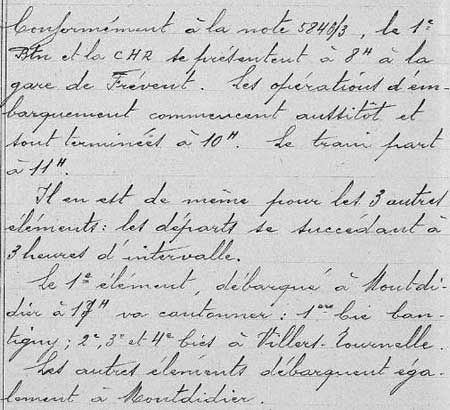 Conformément à la note 5846/3, le 1e
Btn et la CHR se présentent à 8H à la
gare de Frévent. Les opérations d'em-
barquement commencent aussitôt et
sont terminées à 10H. Le train part
à 11H.
Il en est de même pour les 3 autres
éléments: les départs se succédant à
3 heures d'intervalle.
Le 1e élément, débarqué à Montdi-
dier à 17H va cantonner: 1ère bie Can-
tigny; 2e, 3e et 4e bies à Villers-Tournelle.
Les autres éléments débarquent éga-
lement à Montdidier.